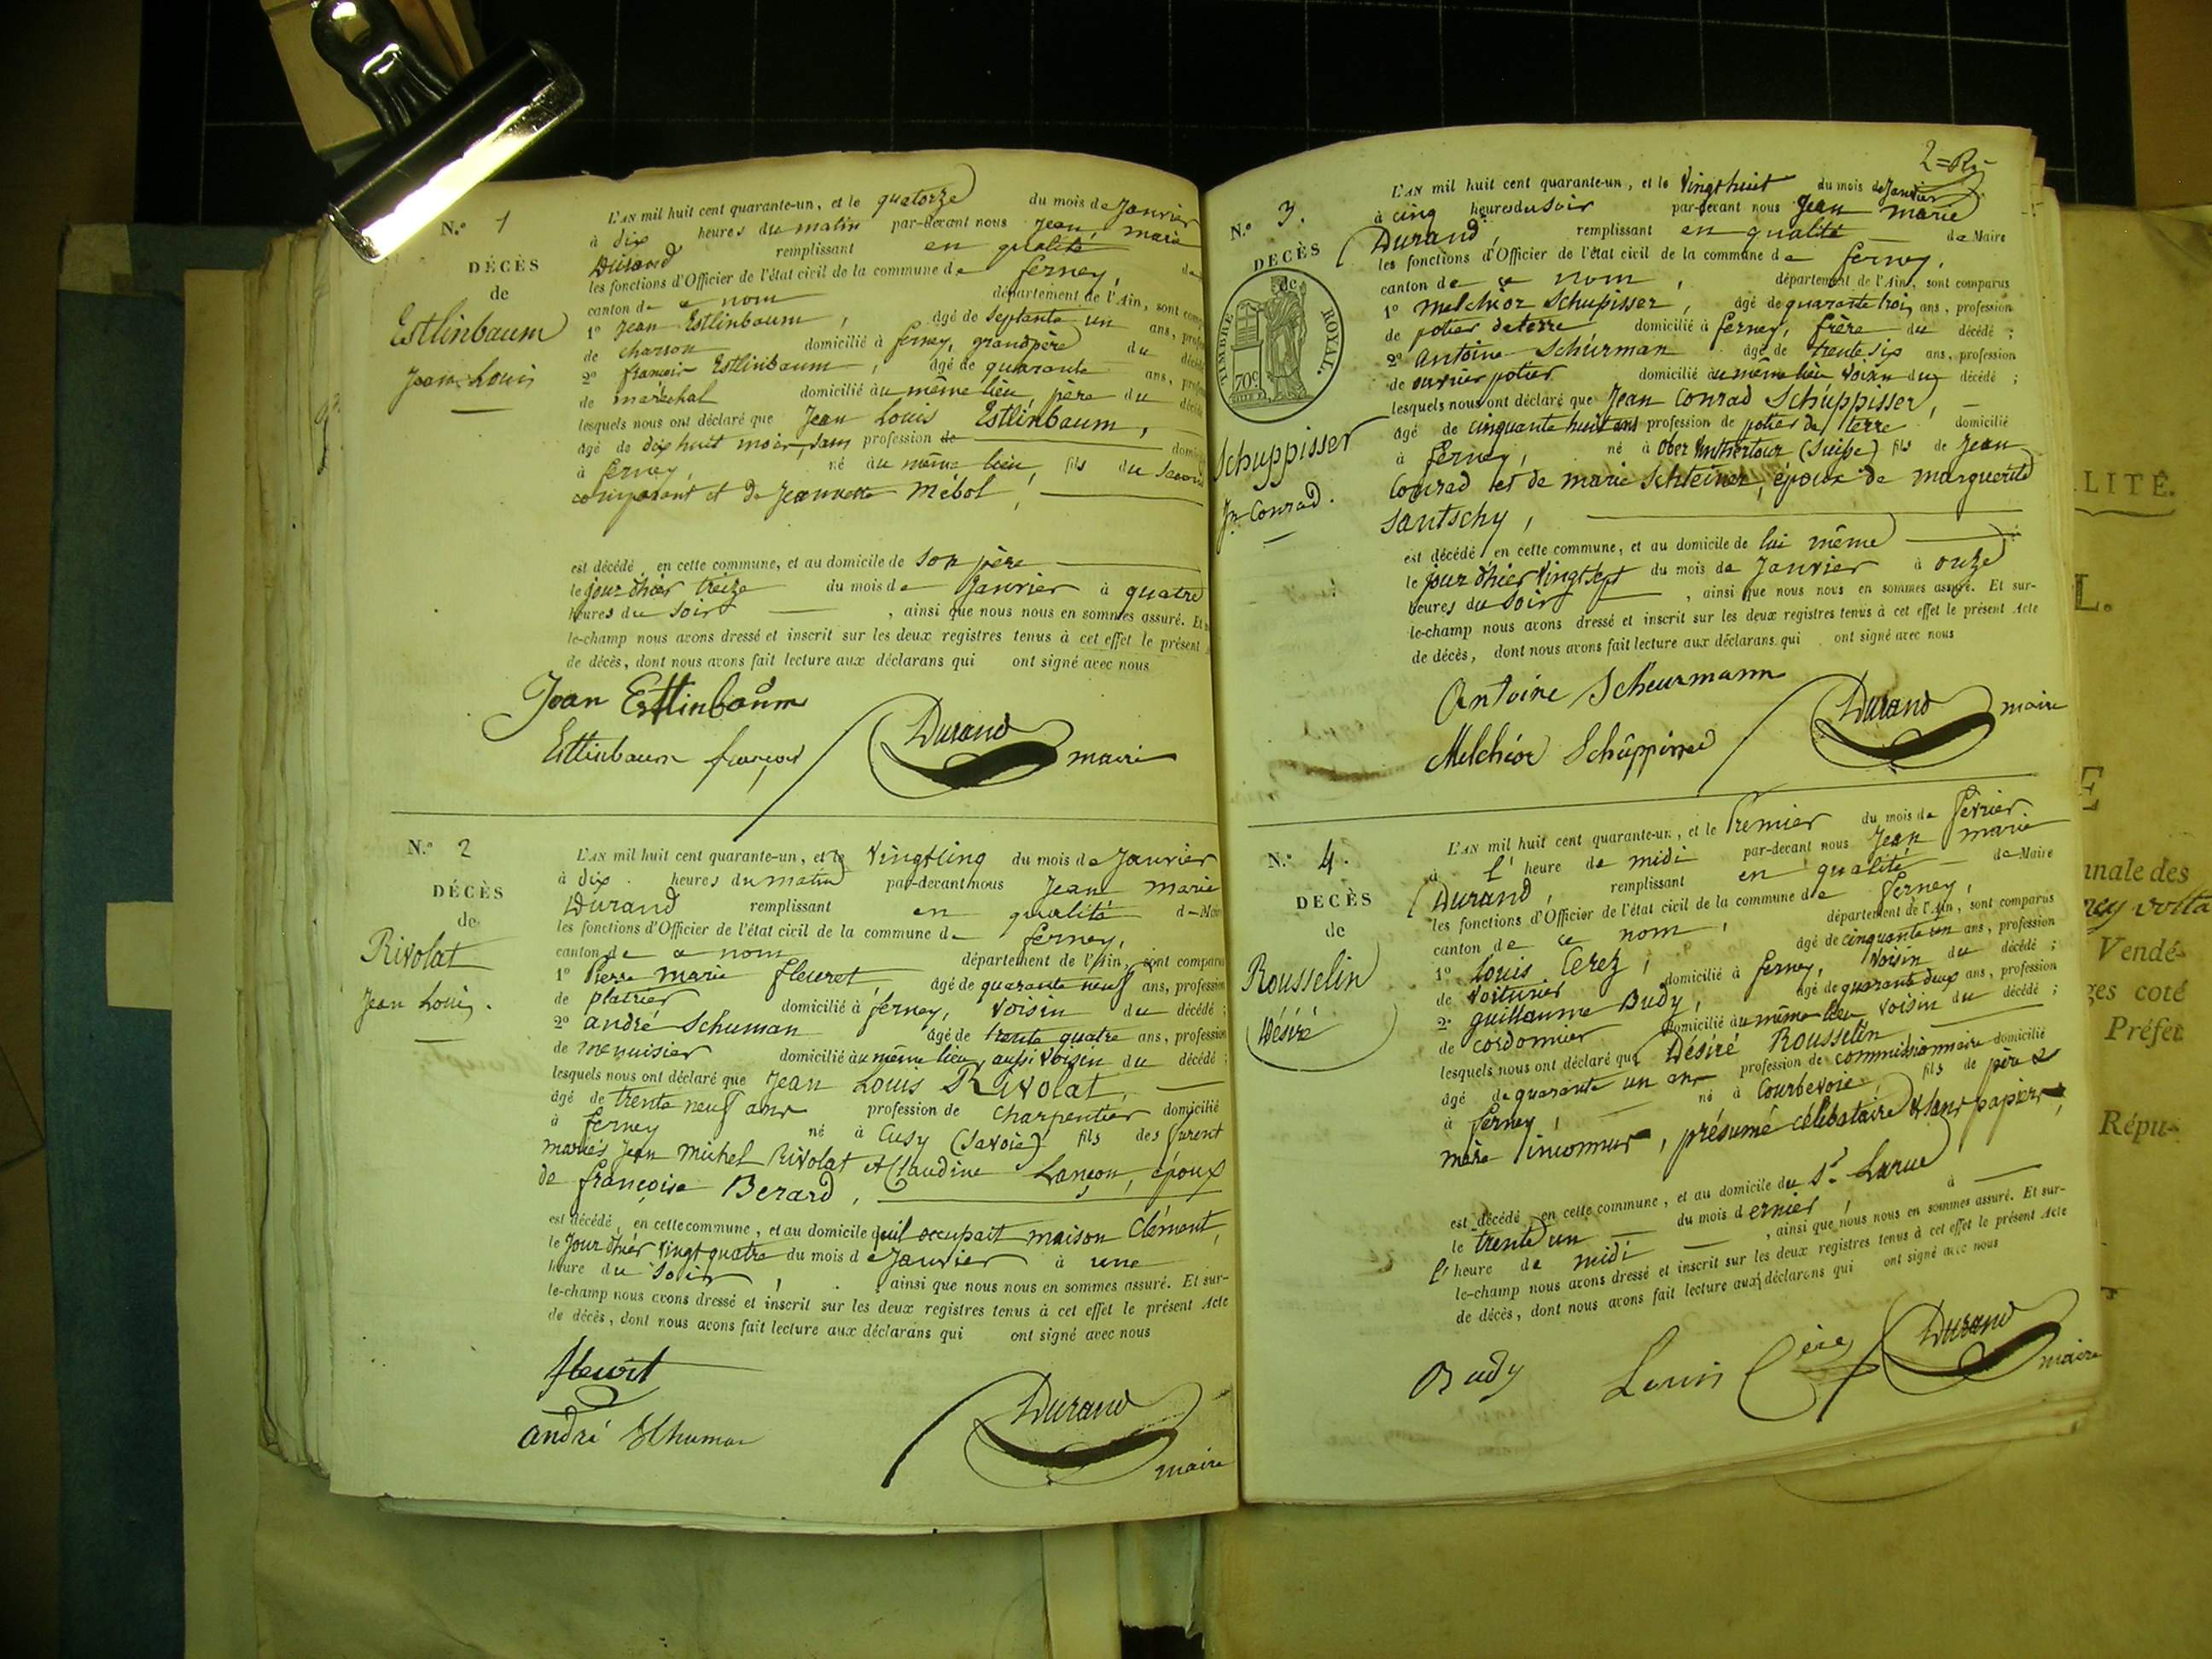 N.º 1
DÉCÈS
de
Estlinbaum
Jean Louis
L'AN mil huit cent quarante-un, et le quatorze du mois de Janvier
à dix heures du matin par-devant nous Jean marie
Durand remplissant en qualité de
les fonctions d'Officier de l'état civil de la commune de ferney,
canton de ce nom département de l'Ain, sont
1º Jean Estlinbaum, âgé de septante un ans,
de charron domicilié à ferney, grandpère du
2º françois Estlinbaum, âgé de quarante ans,
de maréchal domicilié au même lieu, père du
lesquels nous ont déclaré que Jean Louis Estlinbaum,
âgé de dix huit mois, sans profession de
à ferney, né au même lieu, fils du second
comparant et de Jeannette Mébol,
est décédé en cette commune, et au domicile de son père
le jour d'hier treize du mois de Janvier à quatre
heures du soir, ainsi que nous nous en sommes assuré. Et
le-champ nous avons dressé et inscrit sur les deux registres tenus à cet effet le présent
de décès, dont nous avons fait lecture aux déclarans qui ont signé avec nous
Jean Estlinbaum
Estlinbaum françois Durand maire
N.º 2
DÉCÈS
de
Rivolat
Jean Louis.
L'AN mil huit cent quarante-un, et le vingt cinq du mois de Janvier
à dix heures du matin par-devant nous Jean Marie
Durand remplissant en qualité de
les fonctions d'Officier de l'état civil de la commune de ferney,
canton de ce nom département de l'Ain, sont comparus
1º Pierre marie fleuret, âgé de quarante neuf ans, profession
de platrier domicilié à ferney, voisin du décédé;
2º andré Schuman âgé de trente quatre ans, profession
de menuisier domicilié au même lieu, aussi voisin du décédé;
lesquels nous ont déclaré que Jean Louis Rivolat,
âgé de trente neuf ans profession de charpentier domicilié
à ferney né à Cusy (Savoie) fils des furent
mariés Jean Michel Rivolat et Claudine Lançon, époux
de françoise Berard,
est décédé en cette commune, et au domicile qu'il occupait maison Clément,
le Jour d'hier vingt quatre du mois de Janvier à une
heure du soir, ainsi que nous nous en sommes assuré. Et sur-
le-champ nous avons dressé et inscrit sur les deux registres tenus à cet effet le présent Acte
de décès, dont nous avons fait lecture aux déclarans qui ont signé avec nous
fleuret
andré Schuman Durand maire
N.º 3.
DECÈS
de
TIMBRE ROYAL.
70c
Schuppisser
Jn Conrad.
L'AN mil huit cent quarante-un, et le vingt huit du mois de Janvier
à cinq heures du soir par-devant nous Jean marie
Durand, remplissant en qualité de Maire
les fonctions d'Officier de l'état civil de la commune de ferney,
canton de ce nom, département de l'Ain, sont comparus
1º Melchior Schupisser, âgé de quarante trois ans, profession
de potier de terre, domicilié à ferney, frère du décédé;
2º Antoine Schürman âgé de trente six ans, profession
de ouvrier potier domicilié au même lieu voisin du décédé;
lesquels nous ont déclaré que Jean Conrad Schüppisser,
âgé de cinquante huit ans profession de potier de terre domicilié
à ferney, né à Ober (Suisse) fils de Jean
Conrad et de marie Schteiner, époux de marguerite
Santschy,
est décédé en cette commune, et au domicile de lui même
le jour d'hier vingt sept du mois de Janvier à onze
heures du soir, ainsi que nous nous en sommes assuré. Et sur-
le-champ nous avons dressé et inscrit sur les deux registres tenus à cet effet le présent Acte
de décès, dont nous avons fait lecture aux déclarans qui ont signé avec nous
Antoine Scheurmann
Melchior Schüppisser Durand maire
N.º 4.
DECÈS
de
Rousselin
Désiré
L'AN mil huit cent quarante-un, et le Premier du mois de février
à l'heure de midi par-devant nous Jean marie
Durand, remplissant en qualité de Maire
les fonctions d'Officier de l'état civil de la commune de ferney,
canton de ce nom, département de l'Ain, sont comparus
1º Louis Cerez, âgé de cinquante un ans, profession
de voiturier domicilié à ferney, voisin du décédé;
2º guillaume Budy, âgé de quarante deux ans, profession
de cordonnier domicilié au même lieu voisin du décédé;
lesquels nous ont déclaré que Désiré Rousselin
âgé de quarante un ans profession de commissionnaire domicilié
à ferney, né à Courbevoie, fils de père &
mère inconnus, présumé célibataire & sans papiers,
est décédé en cette commune, et au domicile du Sr. Larue
le trente un du mois dernier, à
l'heure de midi, ainsi que nous nous en sommes assuré. Et sur-
le-champ nous avons dressé et inscrit sur les deux registres tenus à cet effet le présent Acte
de décès, dont nous avons fait lecture aux déclarans qui ont signé avec nous
Budy Louis Durand maire
LITÉ.
L.
E
nnale des
ney volta
Vendé-
ges coté
Préfet
Répu-